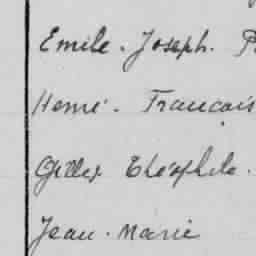 Emile. Joseph. P
Henri. Francois
Gilles Théophile.
Jean. Marie